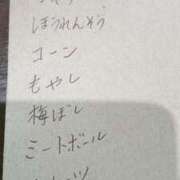 ほうれんそう
コーン
もやし
梅ぼし
ミートボール